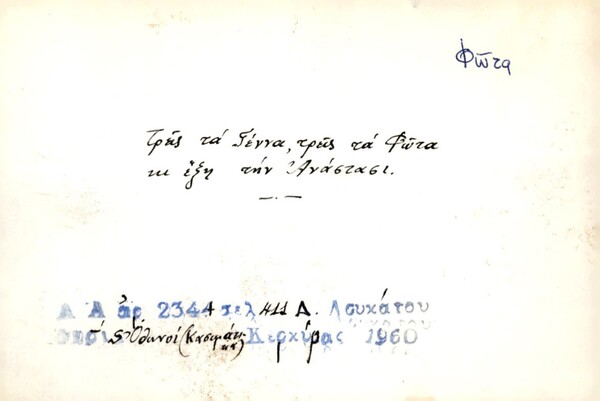 Φῶτα
Τρεῖς τά Γέννα, τρεῖς τά Φῶτα
κι ἕξη τήν Ἀνάστασι.
Λ Α ἀρ 2344 σελ 411 Δ. Λουκάτου
Ὀθωνοί Κερκύρας 1960